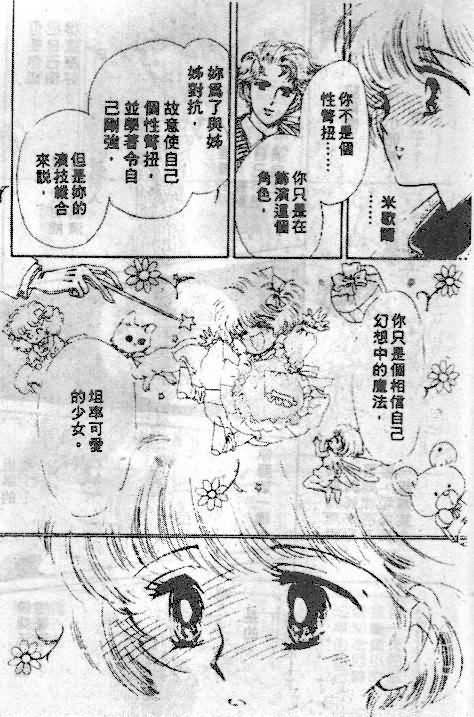 米歇爾
⋯⋯
你不是個
性彆扭⋯⋯
你只是在
飾演這個
角色，
妳為了與姊
姊對抗，
故意使自己
個性彆扭，
並學著令自
己剛強，
但是妳的
演技綜合
來說，
你只是個相信自己
幻想中的魔法，
坦率可愛
的少女。